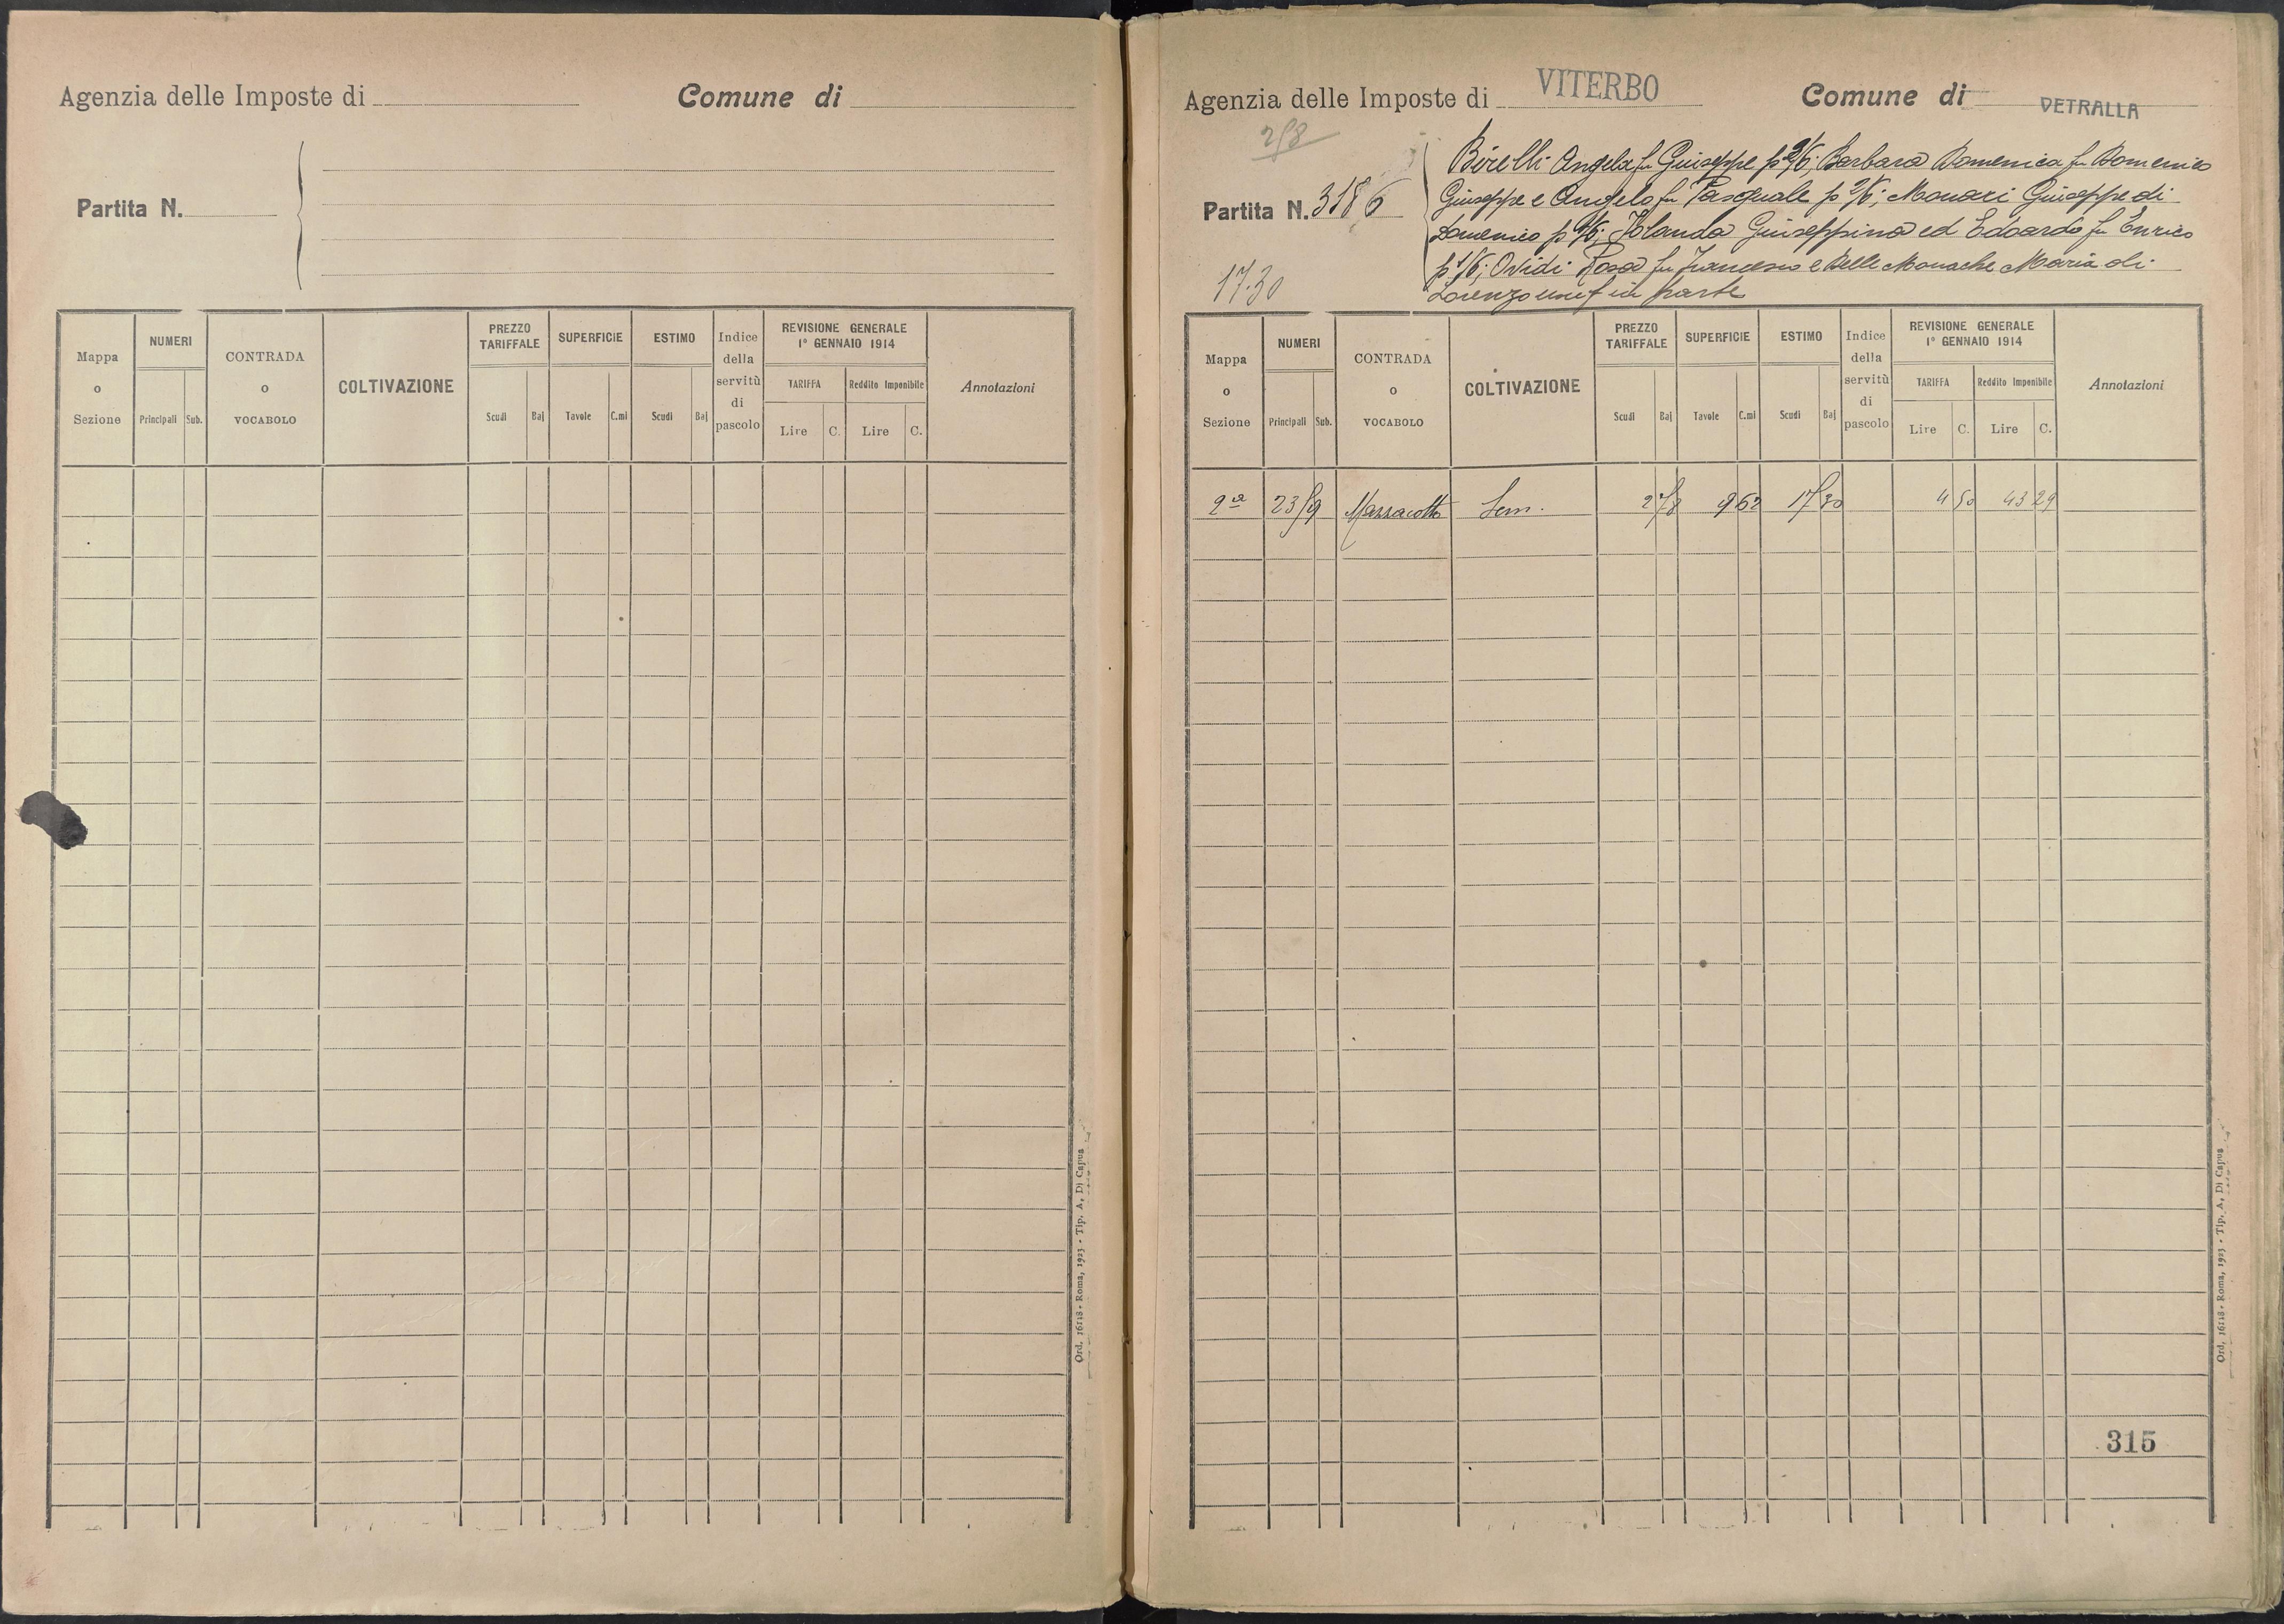 Agenzia delle Imposte di
Comune di
Partita N.
Mappa o Sezione
NUMERI
Principali
Sub.
CONTRADA o VOCABOLO
COLTIVAZIONE
PREZZO TARIFFALE
Scudi
Baj
SUPERFICIE
Tavole
C.mi
ESTIMO
Scudi
Baj
Indice della servitù di pascolo
REVISIONE GENERALE
1° GENNAIO 1914
TARIFFA
Reddito Imponibile
Lire
C.
Lire
C.
Annotazioni
Ord. 16118 - Roma, 1923 - Tip. A. Di Capua
Agenzia delle Imposte di VITERBO
Comune di VETRALLA
Partita N. 3186
17.30
Birelli Angela fu Giuseppe p 2/6; Barbara Domenica fu Domenico
Giuseppe e Angelo fu Pasquale p 2/6; Monari Giuseppe di
Domenico p 1/6; Jolanda Giuseppina ed Edoardo fu Enrico
p 1/6; Ovidi Rosa fu Francesco e Delle Monache Maria di
Lorenzo usuf in parte
Mappa o Sezione
NUMERI
Principali
Sub.
CONTRADA o VOCABOLO
COLTIVAZIONE
PREZZO TARIFFALE
Scudi
Baj
SUPERFICIE
Tavole
C.mi
ESTIMO
Scudi
Baj
Indice della servitù di pascolo
REVISIONE GENERALE
1° GENNAIO 1914
TARIFFA
Reddito Imponibile
Lire
C.
Lire
C.
Annotazioni
2a Mazzacotto Sem. 9 62 17 30 4 50 43 29
315
Ord. 16118 - Roma, 1923 - Tip. A. Di Capua